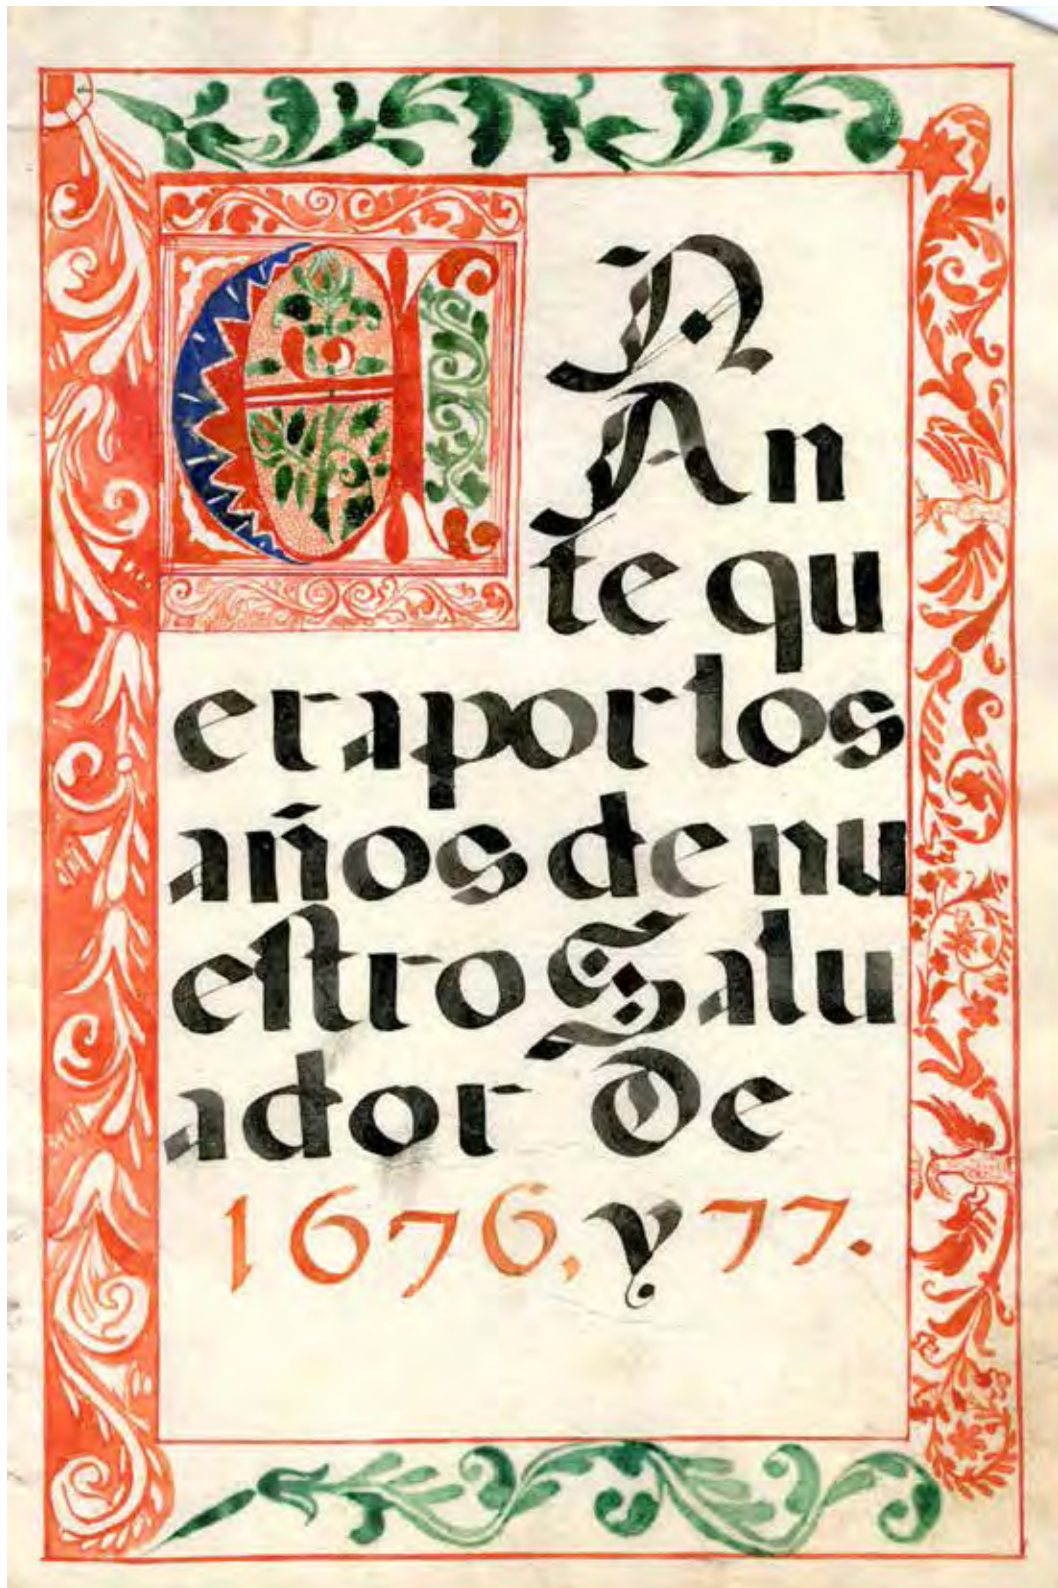 EN
An
te qu
era por los
años de nu
eſtro Salu
ador De
1676, y 77.